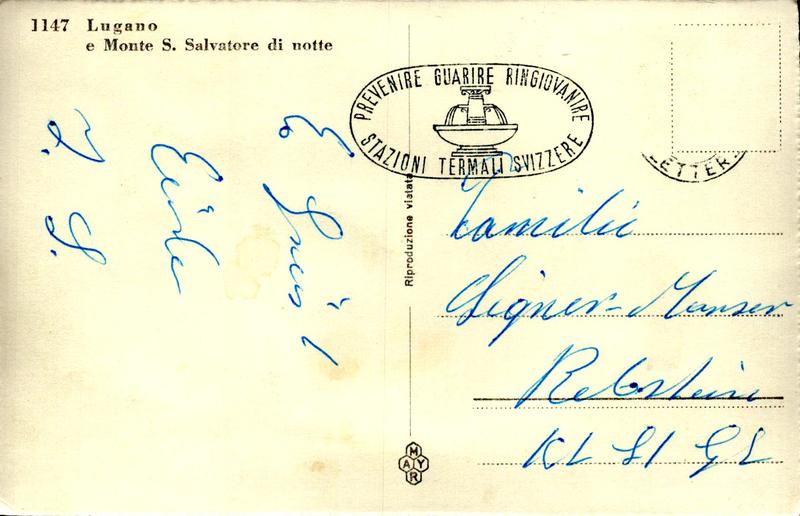 1147 Lugano
e Monte S. Salvatore di notte
PREVENIRE GUARIRE RINGIOVANIRE
STAZIONI TERMALI SVIZZERE
LETTER
Riproduzione vietata
E Gruss!
J. G.
Familie
Signer-Manser
Rebstein
Kt St GL
MAYR